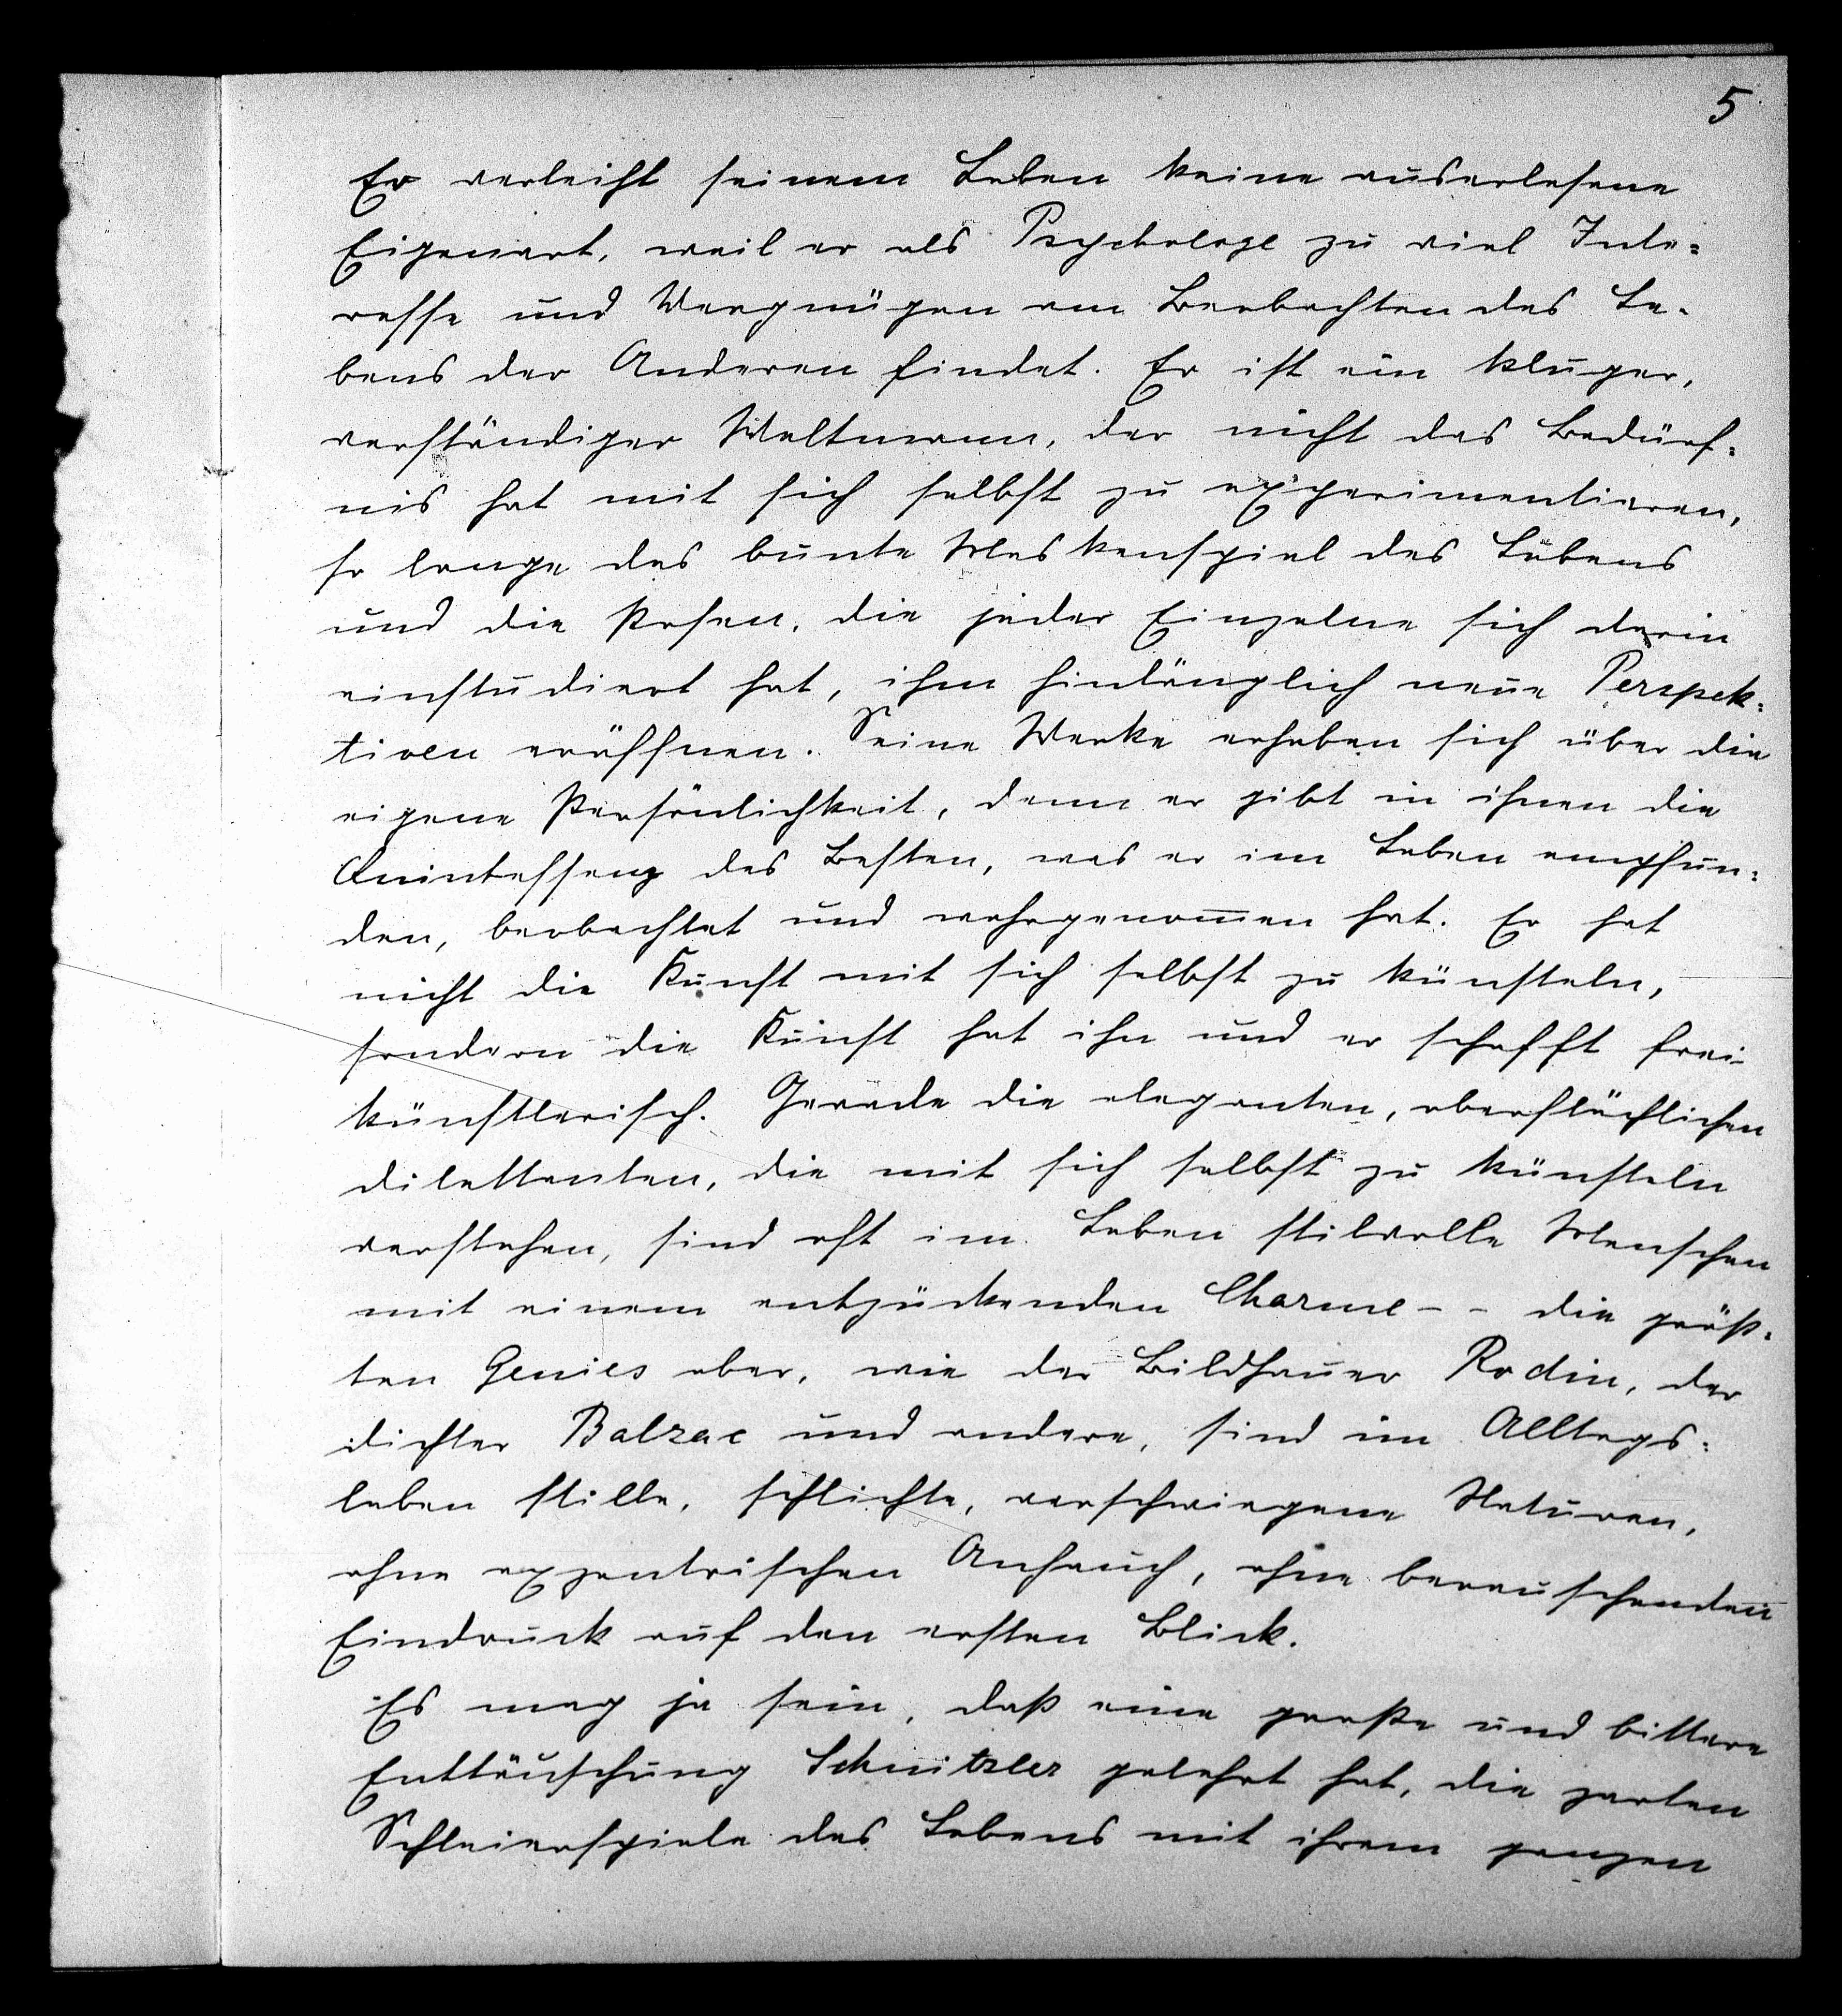 5
Er verleiht seinem Leben keine auserlesene
Eigenart, weil er als Psychologe zu viel Inte=
resse und Vergnügen am Beobachten des Le-
bens der Anderen findet. Er ist ein kluger,
verständiger Weltmann, der nicht das Bedürf=
nis hat mit sich selbst zu experimentieren,
so lange das bunte Maskenspiel des Lebens
und die Posen, die jeder Einzelne sich darin
einstudiert hat, ihm hinlänglich neue Perspek=
tiven eröffnen. Seine Werke erheben sich über die
eigene Persönlichkeit, denn er gibt in ihnen die
Quintessenz des Besten, was er im Leben empfun=
den, beobachtet und wahrgenom̅en hat. Er hat
nicht die Kunst mit sich selbst zu künsteln,
sondern die Kunst hat ihn und er schafft frei
künstlerisch. Gerade die eleganten, oberflächlichen
Dilettanten, die mit sich selbst zu künsteln
verstehen, sind oft im Leben stilvolle Menschen
mit einem entzückenden Charme - - die größ=
ten Genies aber, wie der Bildhauer Rodin, der
Dichter Balzac und andere, sind im Alltags=
leben stille, schlichte, verschwiegene Naturen,
ohne exzentrischen Anhauch, ohne berauschenden
Eindruck auf den ersten Blick.
Es mag ja sein, daß eine große und bittere
Enttäuschung Schnitzler gelehrt hat, die zarten
Schleierspiele des Lebens mit ihrem ganzen